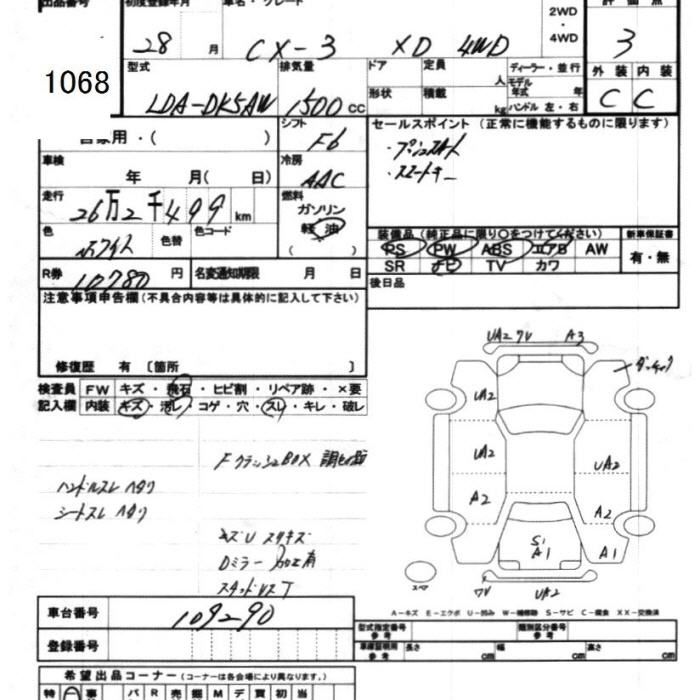 出品番号 初度登録年月 車名・グレード 評価点
28 月 CX-3 XD 4WD 2WD・4WD 3
1068
型式 排気量 ドア 定員 人 ディーラー・並行 外装 内装
LDA-DK5AW 1500 cc 形状 積載 kg モデル年式 年 ハンドル 左・右 C C
自家用・( ) シフト F6 セールスポイント (正常に機能するものに限ります)
・プッシュスタート
・スマートキー
車検 年 月( 日) 冷房 AAC
走行 26万2千499 km 燃料 ガソリン 軽油 ( )
色 ホワイト 色替 色コード
装備品 (純正品に限り○をつけてください) 新車保証書
PS PW ABS エアB AW 有・無
SR ナビ TV カワ
R券 10780 円 名変通知期限 月 日
後日品
注意事項申告欄 (不具合内容等は具体的に記入して下さい)
修復歴 有 〔箇所 〕
検査員 FW キズ・飛石・ヒビ割・リペア跡・×要
記入欄 内装 キズ・汚レ・コゲ・穴・スレ・キレ・破レ
UA2 A3
UA2
UA2 UA2
A2 A2
S1 A1 A1
UA2
スペア
ハンドルスレ ヘタリ
シートスレ ヘタリ
Dミラー 加工有
A-キズ E-エクボ U-凹み W-補修跡 S-サビ C-腐食 XX-交換済
車台番号 109290
登録番号
型式指定番号 参考 類別区分番号 参考
車庫証明用 参考 長さ cm 幅 cm 高さ cm
希望出品コーナー (コーナーは各会場により異なります。)
特 事 パ R 売 M デ 買 初 当